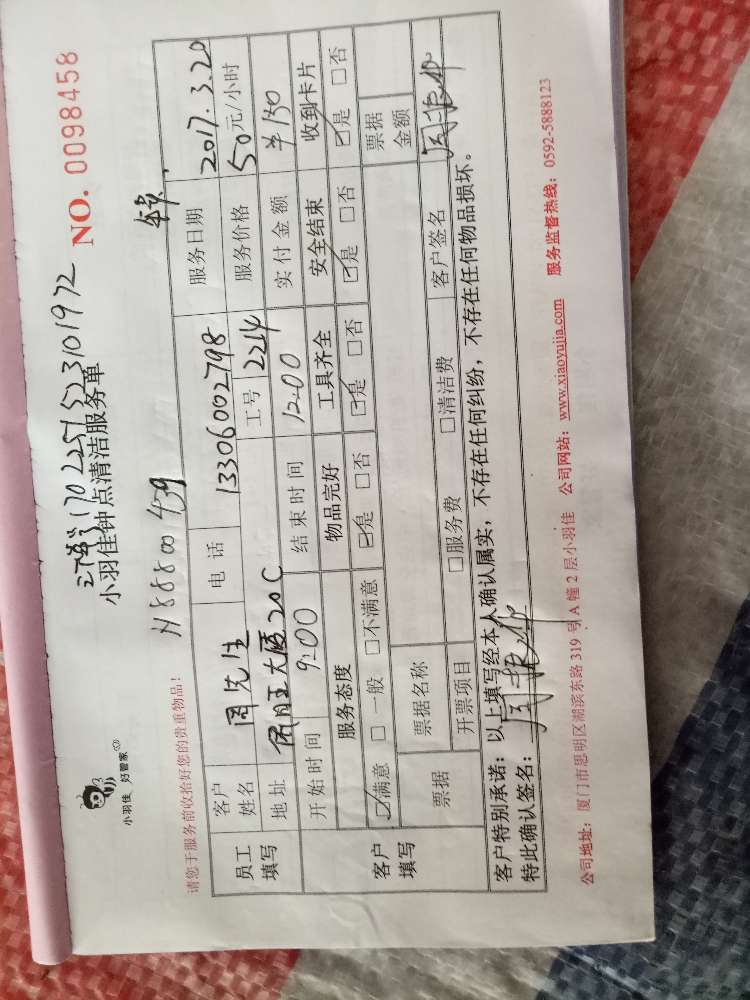 1702251523101972
NO. 0098458
小羽佳 好管家
小羽佳钟点清洁服务单
H88800439
请您于服务前收拾好您的贵重物品!
员工填写 客户姓名 周先生 电话 13306002798 服务日期 2017.3.20
地址 大厦20C 工号 2214 服务价格 50元/小时
开始时间 9:00 结束时间 12:00 实付金额 ¥130
客户填写 服务态度 物品完好 工具齐全 安全结束 收到卡片
☑满意 □一般 □不满意 ☑是 □否 ☑是 □否 ☑是 □否 ☑是 □否
票据 票据名称 票据金额
开票项目 □服务费 □清洁费 客户签名
客户特别承诺:以上填写经本人确认属实,不存在任何纠纷,不存在任何物品损坏。
特此确认签名:
公司地址:厦门市思明区湖滨东路319号A幢2层小羽佳 公司网站:www.xiaoyujia.com 服务监督热线:0592-5888123